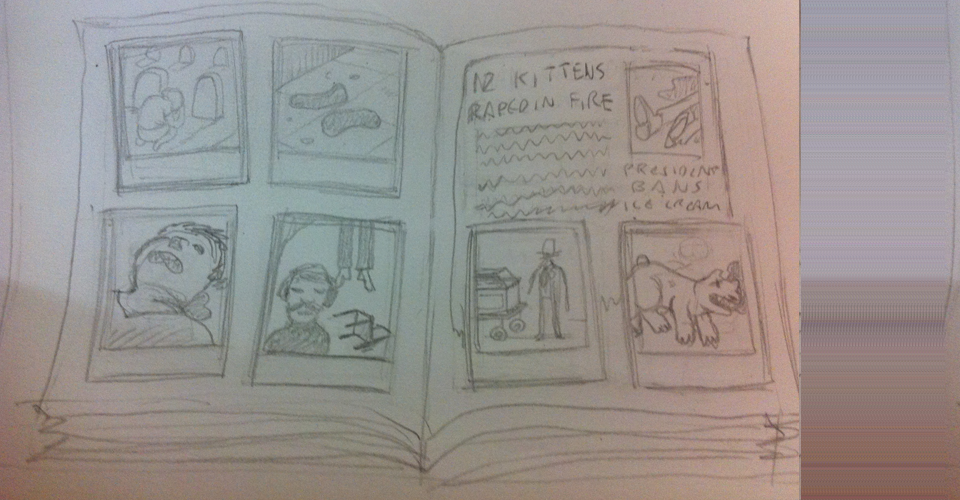 12 KITTENS
RAPED IN FIRE
PRESIDENT
BANS
ICE CREAM